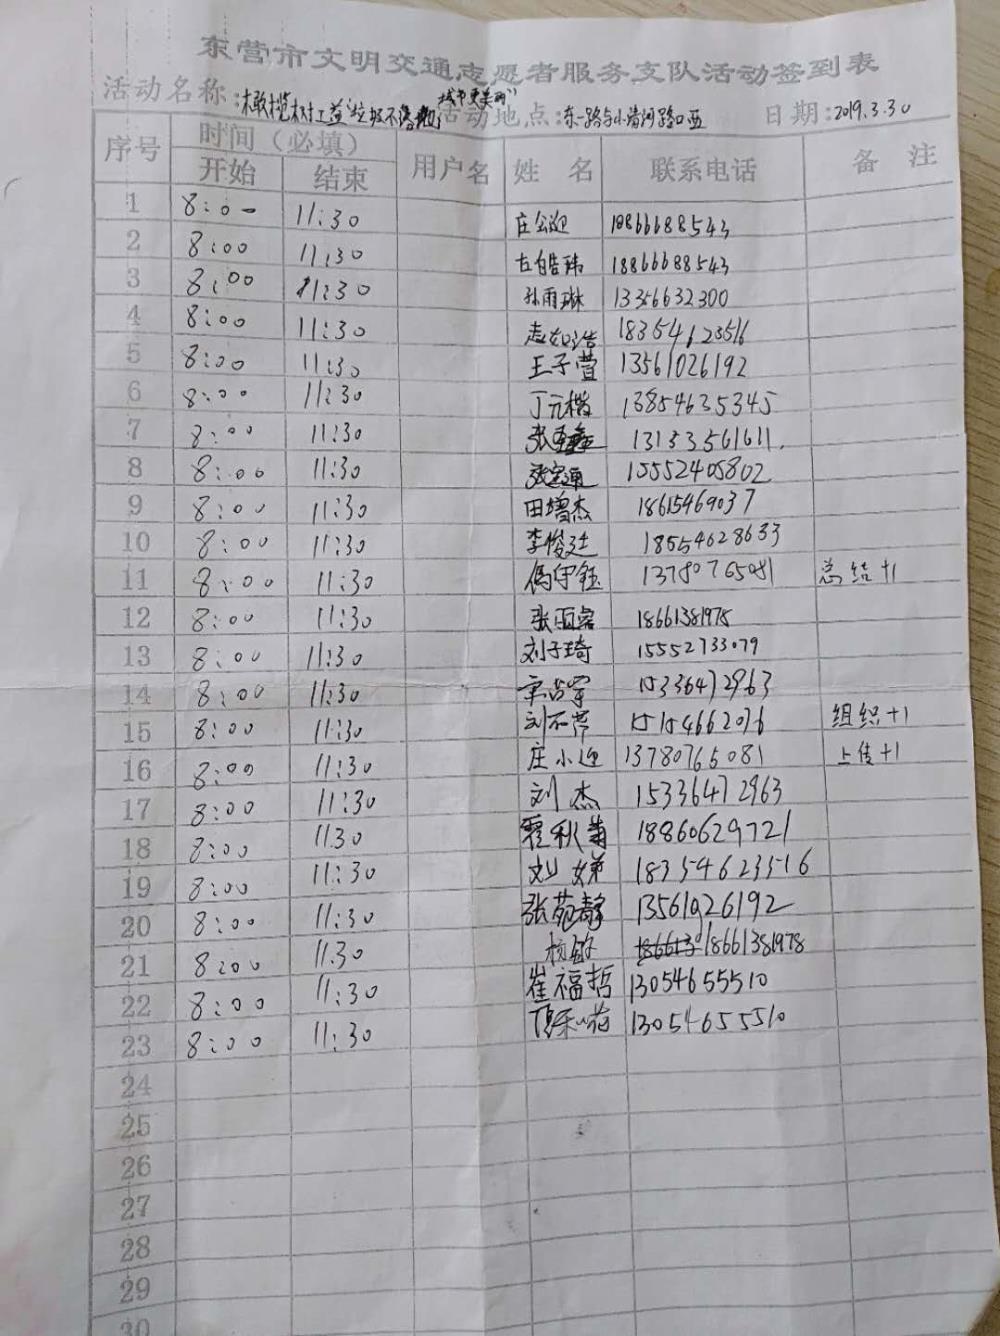 东营市文明交通志愿者服务支队活动签到表
活动名称:橄榄树工益"垃圾不落地 城市更美丽" 活动地点:东一路与小清河路口西 日期:2019.3.30
序号 时间(必填) 用户名 姓名 联系电话 备注
开始 结束
1 8:00 11:30 庄公迎 18866688543
2 8:00 11:30 左皓玮 18866688543
3 8:00 11:30 孙雨琳 13356632300
4 8:00 11:30 18354623516
5 8:00 11:30 王子萱 13561026192
6 8:00 11:30 丁元楷 13854635345
7 8:00 11:30 张 13153561611
8 8:00 11:30 张 15552405802
9 8:00 11:30 田增杰 18615469037
10 8:00 11:30 李俊廷 18554628633
11 8:00 11:30 13780765081 总结+1
12 8:00 11:30 张 18661381978
13 8:00 11:30 刘子琦 15552733079
14 8:00 11:30 15336472963
15 8:00 11:30 刘不芹 15154662076 组织+1
16 8:00 11:30 庄小迎 13780765081 上传+1
17 8:00 11:30 刘杰 15336472963
18 8:00 11:30 霍秋菊 18860629721
19 8:00 11:30 刘娣 18354623516
20 8:00 11:30 张苑静 13561026192
21 8:00 11:30 18661381978
22 8:00 11:30 崔福哲 13054655510
23 8:00 11:30 13054655510
24
25
26
27
28
29
30